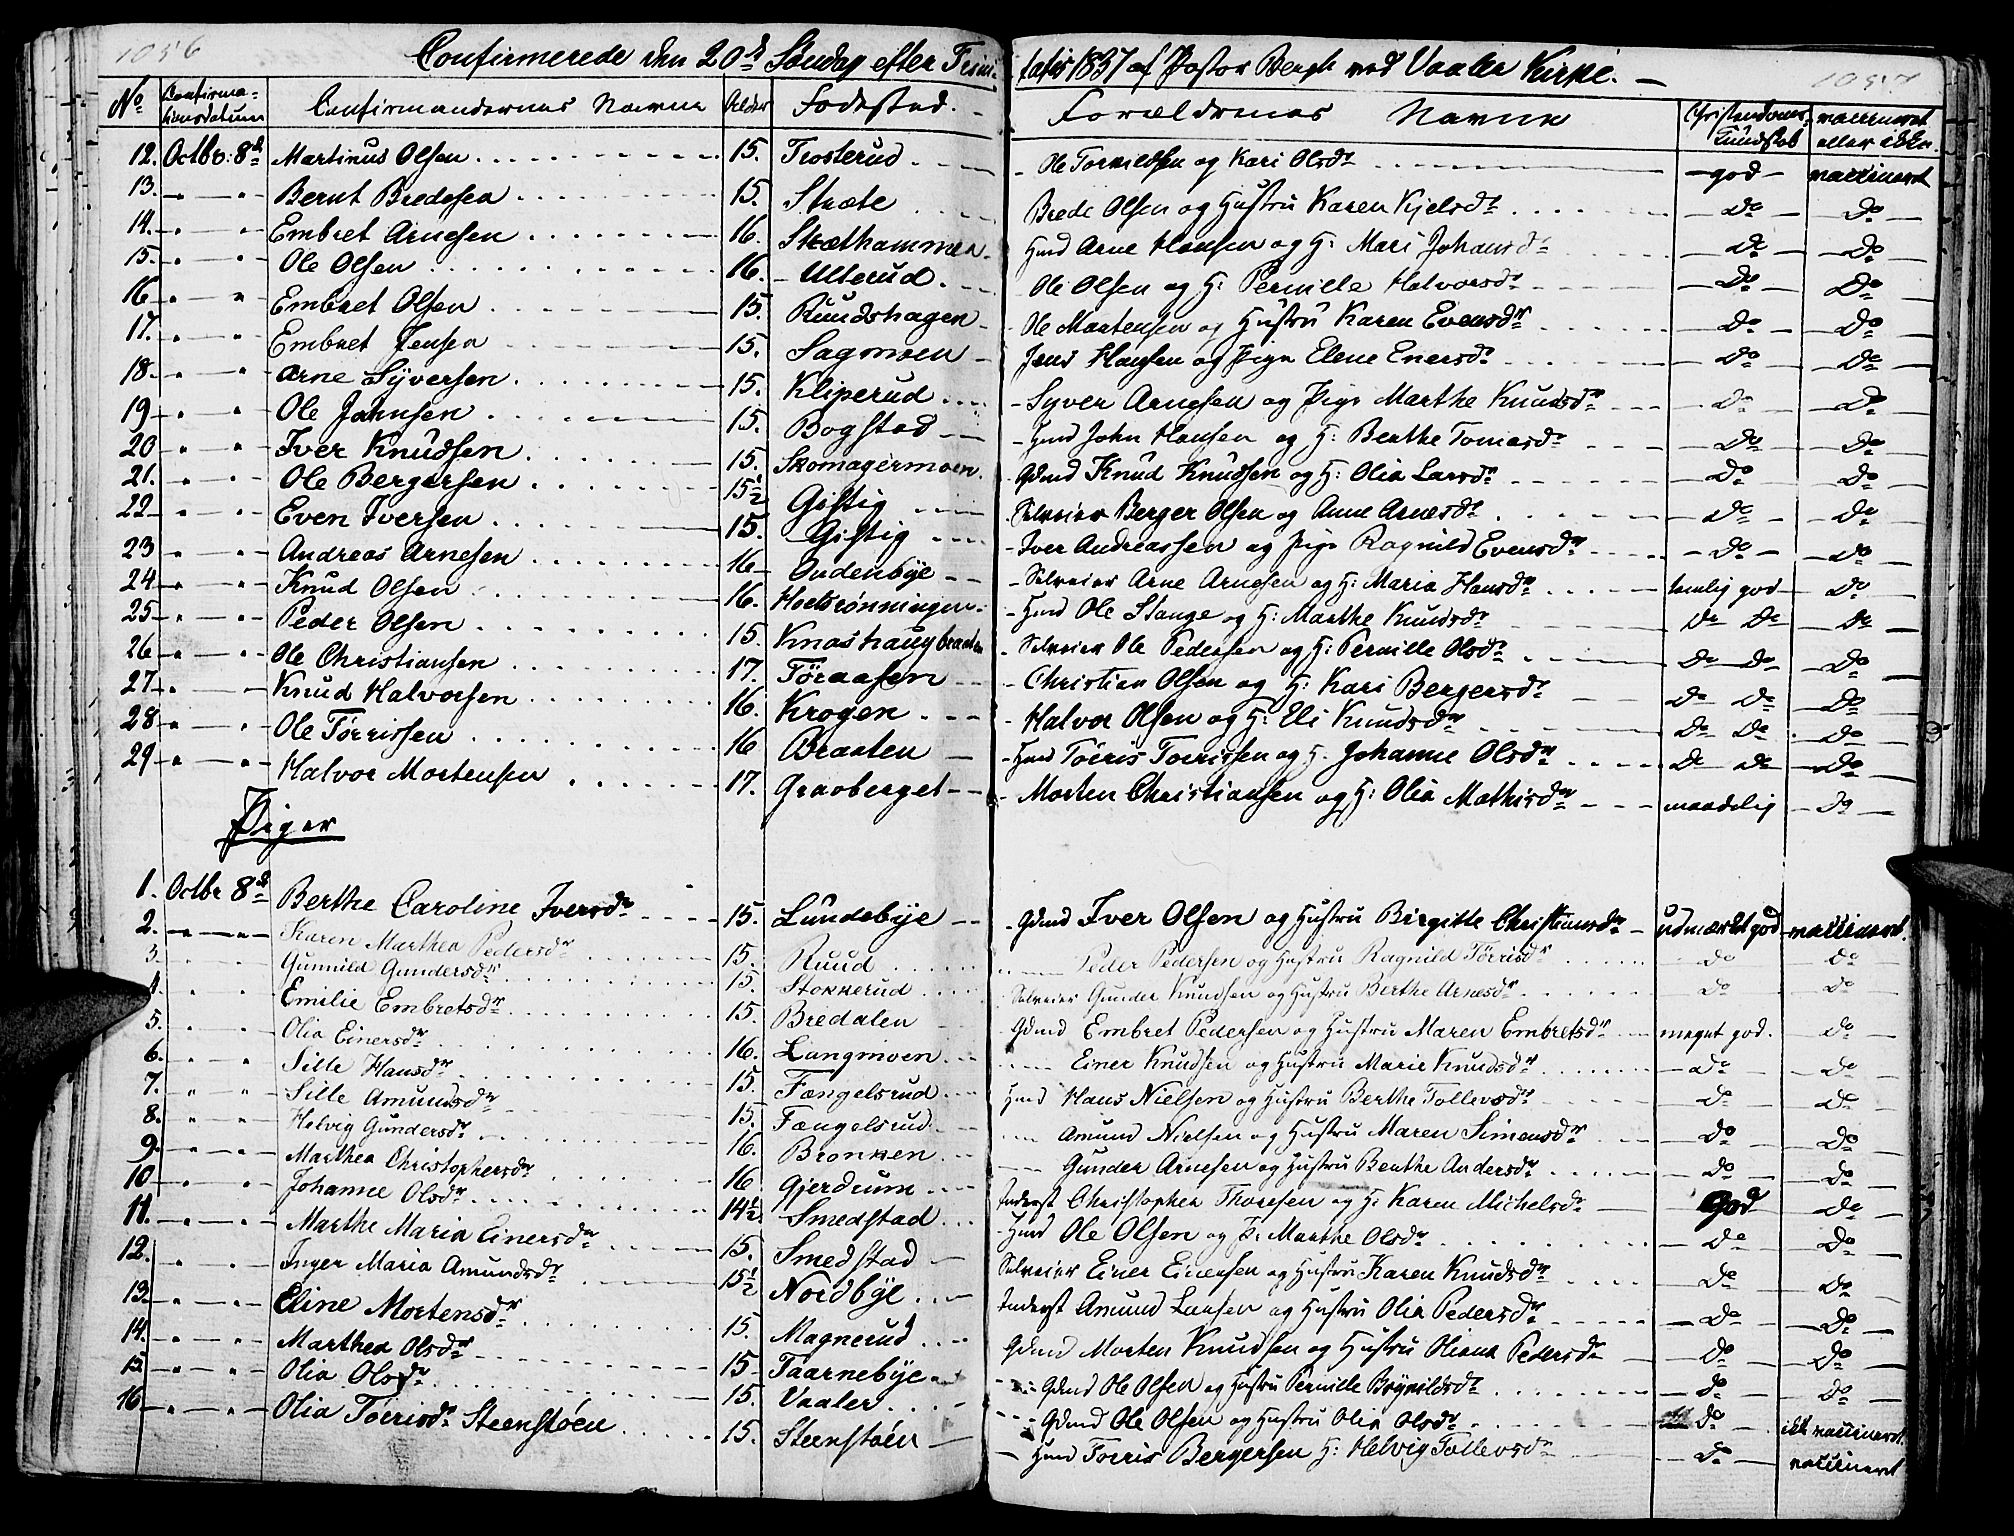 1056
1057
Confirmerede den 20de Søndag efter Trinitatis 1837 af Pastor Bergh ved Vaaler Kirke.
No Confirmationsdatum Confirmandernes Navne Alder Fødested. Forældrenes Navne Christendoms Kundskab vaccineret eller ikke.
12. Octbr: 8de Martinus Olsen 15. Trosterud - Ole Torkildsen og Kari Olsdr god vaccineret
13. " " Bernt Bredesen 15. Stræte Brede Olsen og Hustru Karen Kjelsdr Do Do
14. " " Embret Arnesen 16. Skæthammeren Hmd Arne Hansen og H: Mari Johansdr Do Do
15. " " Ole Olsen 16. Ulterud Ole Olsen og H: Pernille Halvorsdr Do Do
16 " " Embret Olsen 15. Ruudshagen Ole Mortensen og Hustru Karen Evensdr Do Do
17. " " Embret Jensen 15. Sagmoen Jens Hansen og Pige Elene Enersdr Do Do
18. " " Arne Syversen 15. Kliperud - Syver Arnesen og Pige Marthe Knudsdr Do Do
19 " " Ole Johnsen 15. Bogstad - Hmd John Hansen og H: Berthe Tomasdr Do Do
20 " " Iver Knudsen 15. Skomagermoen Gdmd Knud Knudsen og H: Olia Larsdr Do Do
21. " " Ole Bergersen 15½ Gistig Selveier Berger Olsen og Anne Arnesdr Do Do
22 " " Even Iversen 15. Gistig - Iver Andreassen og Pige Ragnild Evensdr Do Do
23 " " Andreas Arnesen 16 Oudenbye - Selveier Arne Arnesen og H: Maria Hansdr temlig god Do
24 " " Knud Olsen 16. Holtrønningen - Hmd Ole Stange og H: Marthe Knudsdr Do Do Do
25 " " Peder Olsen 15. Knashaugbraaten Selveier Ole Pedersen og H: Pernille Olsdr Do Do Do
26 " " Ole Christiansen 17. Føraasen - Christian Olsen og H: Kari Bergersdr Do Do Do
27 " " Knud Halvorsen 16. Krogen - Halvor Olsen og H: Eli Knudsdr Do Do Do
28 " " Ole Tørrissen 16 Braaten - Hmd Tøeris Toerissen og H. Johanne Olsdr Do Do Do
29 " " Halvor Mortensen 17. Graaberget - Morten Christiansen og H: Olia Mathisdr maadelig Do
Piger
1. Octbr 8de Berthe Caroline Iversdr 15. Lundebye - Gdmd Iver Olsen og Hustru Birgitte Christiansdr udmærket god vaccineret.
2. " " Karen Marthea Pedersdr 15. Ruud Peder Pedersen og Hustru Ragnild Tørrisdr Do Do
3. " " Gunnild Gundersdr 15. Stokkerud Selveier Gunder Knudsen og Hustru Berthe Arnesdr Do Do
4. " " Emilie Embretsdr 15. Bredalen Gdmd Embret Pedersen og Hustru Maren Embretsdr meget god. Do
5. " " Olia Einersdr 16. Langmoen Einer Knudsen og Hustru Marie Knudsdr Do Do
6. " " Sille Hansdr 15. Fængelsrud Hmd Hans Nielsen og Hustru Berthe Tollevsdr Do Do
7. " " Sille Amundsdr 15. Fængelsrud Amund Nielsen og Hustru Maren Simensdr Do Do
8. " " Helvig Gundersdr 16. Bronken Gunder Arnesen og Hustru Berthe Andersdr Do Do
9. " " Marthea Christophersdr 16 Gjerdrum Inderst Christopher Thoresen og H: Karen Michelsdr God Do
10 " " Johanne Olsdr 14½ Smedstad Hmd Ole Olsen og H: Marthe Olsdr Do Do
11. " " Marthe Maria Einersdr 15. Smedstad Selveier Einer Einersen og Hustru Karen Knudsdr Do Do
12. " " Inger Maria Amundsdr 15½ Nordbye Inderst Amund Larsen og Hustru Olia Pedersdr Do Do
13. " " Eline Mortensdr 15. Magnerud Gdmd Morten Knudsen og Hustru Oliana Pedersdr Do Do
14. " " Marthea Olsdr 15 Taarnebye Gdmd Ole Olsen og Hustru Pernille Brynildsdr Do Do
15 " " Olia Olsdr 15. Vaaler Gdmd Ole Olsen og Hustru Olia Olsdr Do ikke vaccineret.
16 " " Olia Tøerisdr Steenstøen 15. Steenstøen - Hmd Toeris Bergersen H: Helvig Tollevsdr Do vaccineret